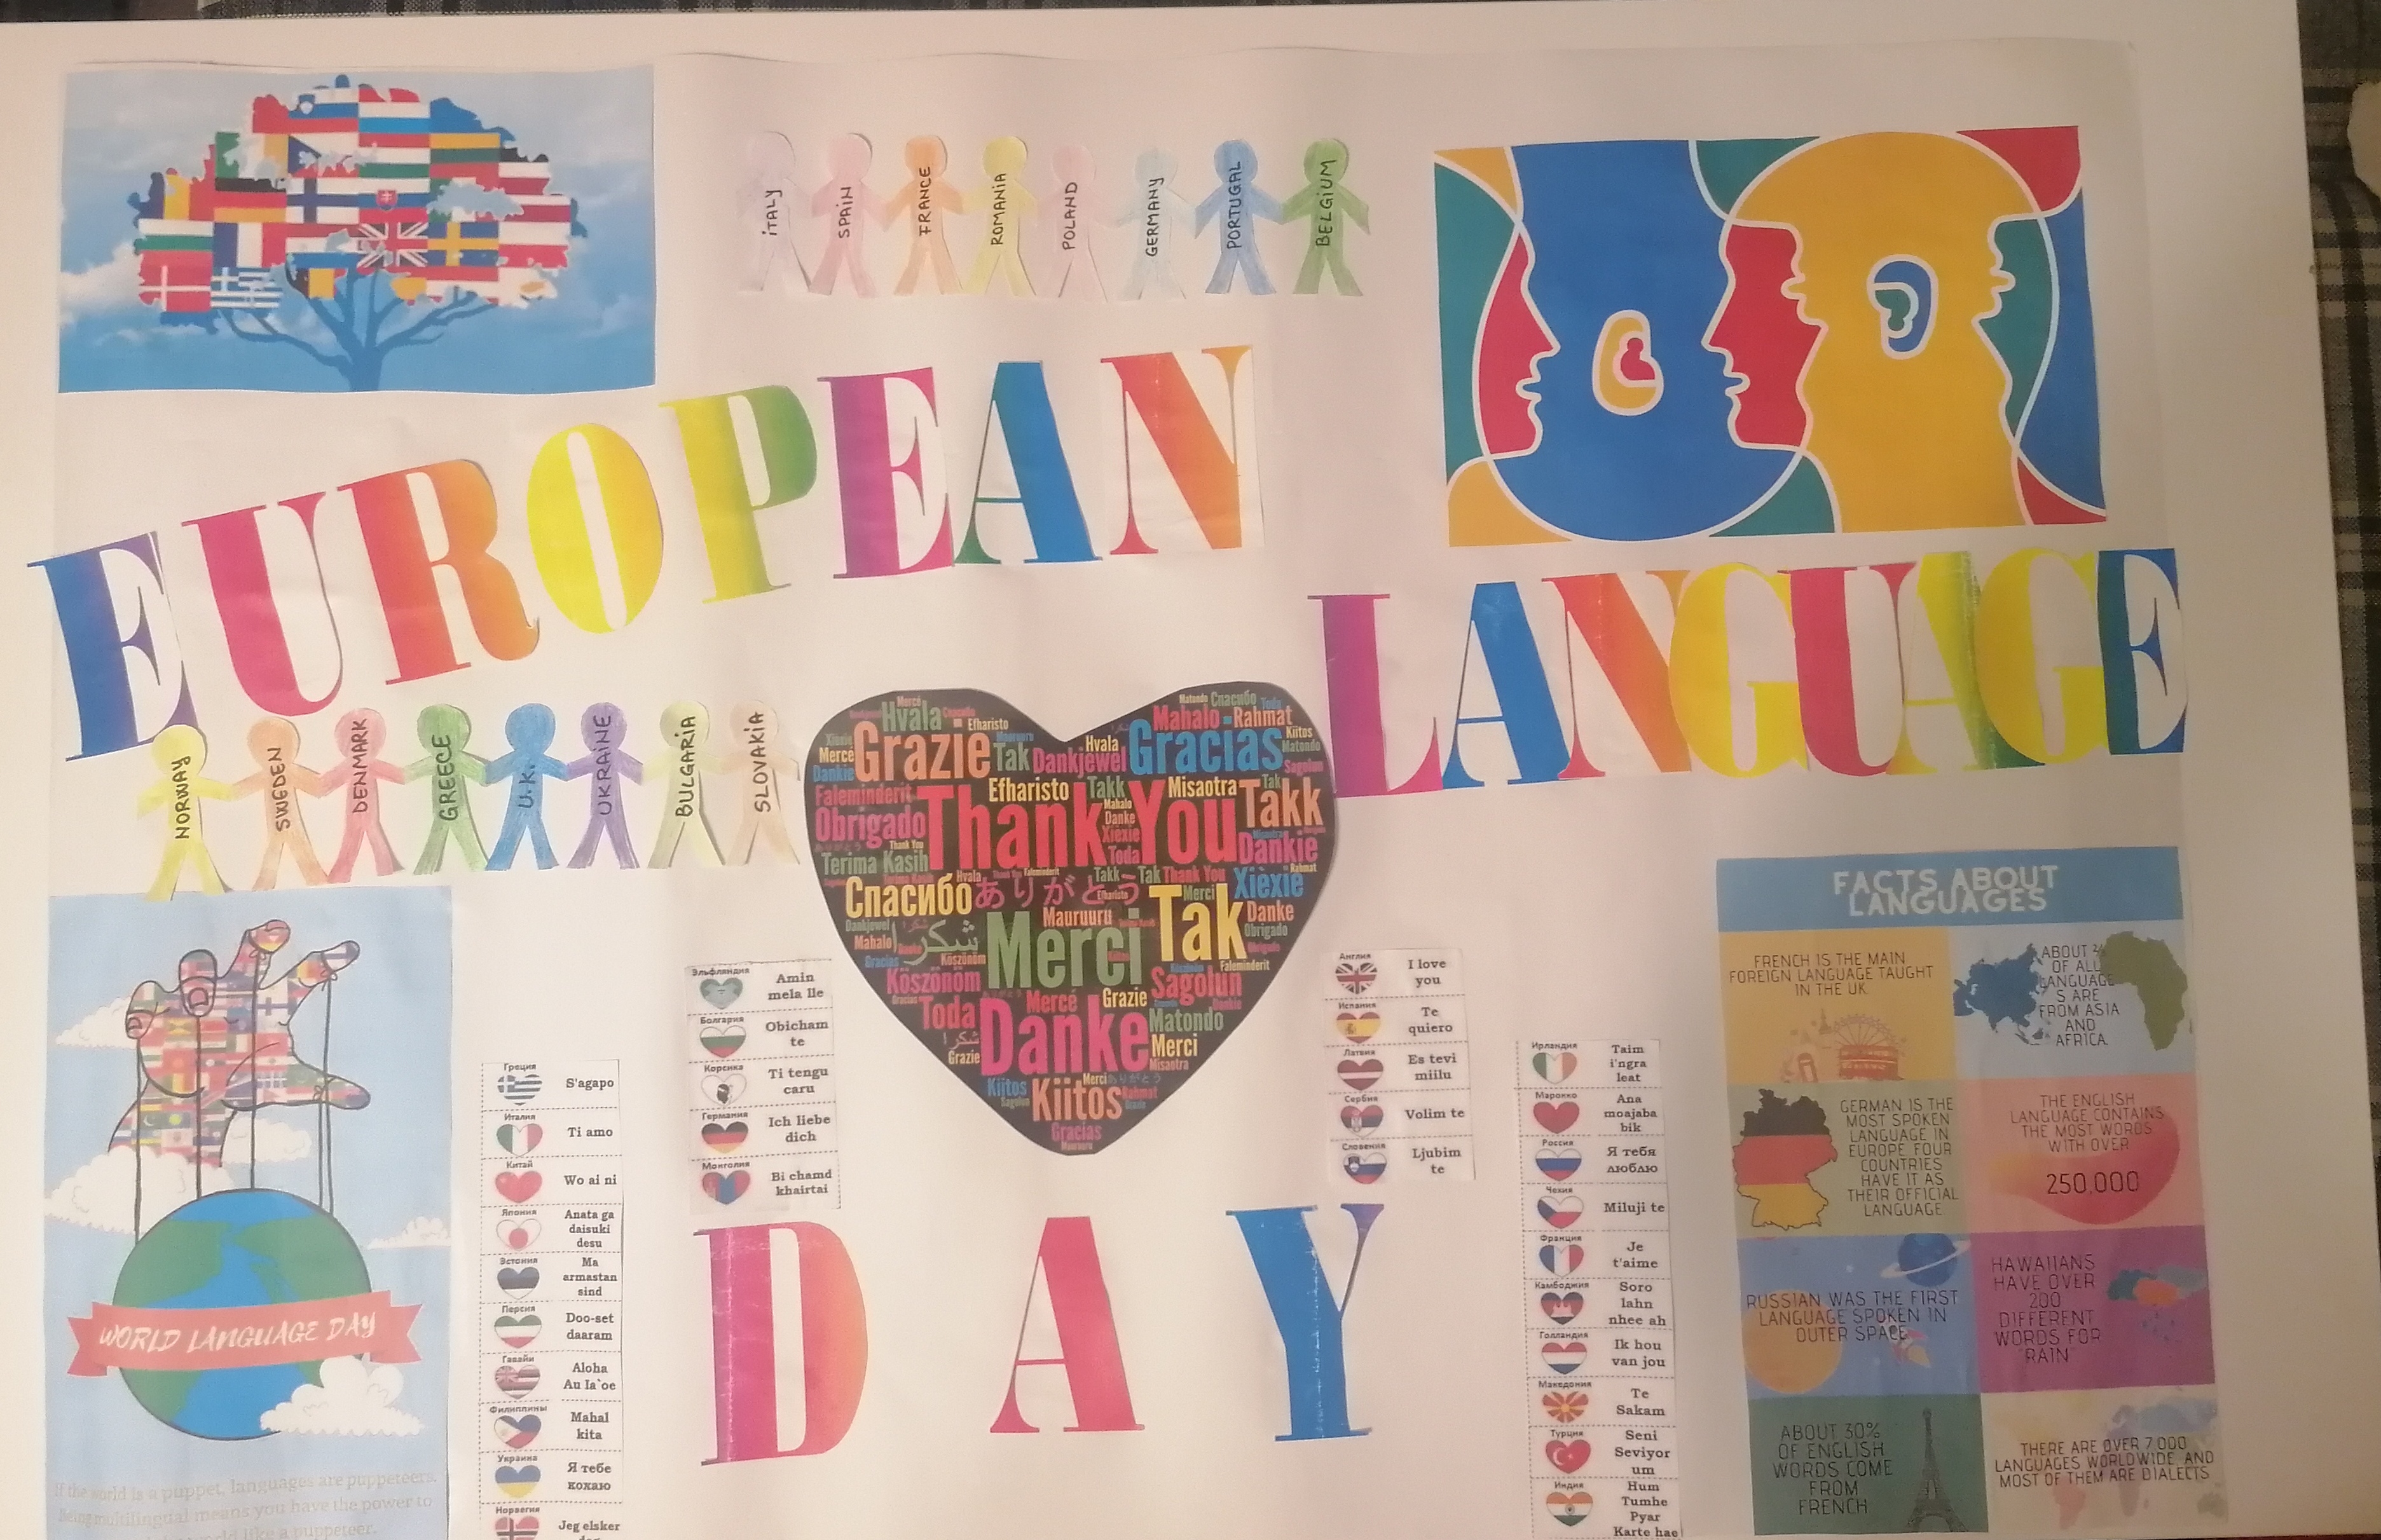 ITALY
SPAIN
FRANCE
ROMANIA
POLAND
GERMANY
PORTUGAL
BELGIUM
EUROPEAN
LANGUAGE
NORWAY
SWEDEN
DENMARK
GREECE
U.K.
UKRAINE
BULGARIA
SLOVAKIA
Mercé
Hvala
Efharisto
Matondo Спасибо Toda
Mahalo Rahmat
Kiitos
Merce Grazie Tak Dankjewel Hvala Gracias Matondo
Dankie
Sagolun
Faleminderit
Efharisto Takk Misaotra Tak Takk
Obrigado Thank You
Mahalo
Danke
Xièxie
Toda
Dankie
Thank You
Terima Kasih
Hvala
Takk Tak Thank You Xièxie Rahmat
Спасибо ありがとう Efharisto Merci
Mauruuru Tak Danke
Dankjewel
Mahalo شكر Merci Obrigado
Gracias Köszönöm
Faleminderit
Köszönöm Sagolun
Gracias
Toda Mercé Grazie
Danke Matondo
شكرا
Grazie Merci
Misaotra
Kiitos Merci ありがとう
Sagolun Kiitos Rahmat
Gracias
Mauruuru
DAY
WORLD LANGUAGE DAY
If the world is a puppet, languages are puppeteers.
Being multilingual means you have the power to
world like a puppeteer.
Греция
S'agapo
Италия
Ti amo
Китай
Wo ai ni
Япония
Anata ga
daisuki
desu
Эстония
Ma
armastan
sind
Персия
Doo-set
daaram
Гавайи
Aloha
Au Ia`oe
Филиппины
Mahal
kita
Украина
Я тебе
кохаю
Норвегия
Jeg elsker
Эльфляндия
Amin
mela lle
Болгария
Obicham
te
Корсика
Ti tengu
caru
Германия
Ich liebe
dich
Монголия
Bi chamd
khairtai
Англия
I love
you
Испания
Te
quiero
Латвия
Es tevi
miilu
Сербия
Volim te
Словения
Ljubim
te
Ирландия
Taim
i'ngra
leat
Марокко
Ana
moajaba
bik
Россия
Я тебя
люблю
Чехия
Miluji te
Франция
Je
t'aime
Камбоджия
Soro
lahn
nhee ah
Голландия
Ik hou
van jou
Македония
Te
Sakam
Турция
Seni
Seviyor
um
Индия
Hum
Tumhe
Pyar
Karte hae
FACTS ABOUT
LANGUAGES
FRENCH IS THE MAIN
FOREIGN LANGUAGE TAUGHT
IN THE UK
ABOUT
OF ALL
LANGUAGE
S ARE
FROM ASIA
AND
AFRICA.
GERMAN IS THE
MOST SPOKEN
LANGUAGE IN
EUROPE FOUR
COUNTRIES
HAVE IT AS
THEIR OFFICIAL
LANGUAGE
THE ENGLISH
LANGUAGE CONTAINS
THE MOST WORDS
WITH OVER
250,000
RUSSIAN WAS THE FIRST
LANGUAGE SPOKEN IN
OUTER SPACE
HAWAIIANS
HAVE OVER
200
DIFFERENT
WORDS FOR
"RAIN"
ABOUT 30%
OF ENGLISH
WORDS COME
FROM
FRENCH
THERE ARE OVER 7,000
LANGUAGES WORLDWIDE AND
MOST OF THEM ARE DIALECTS